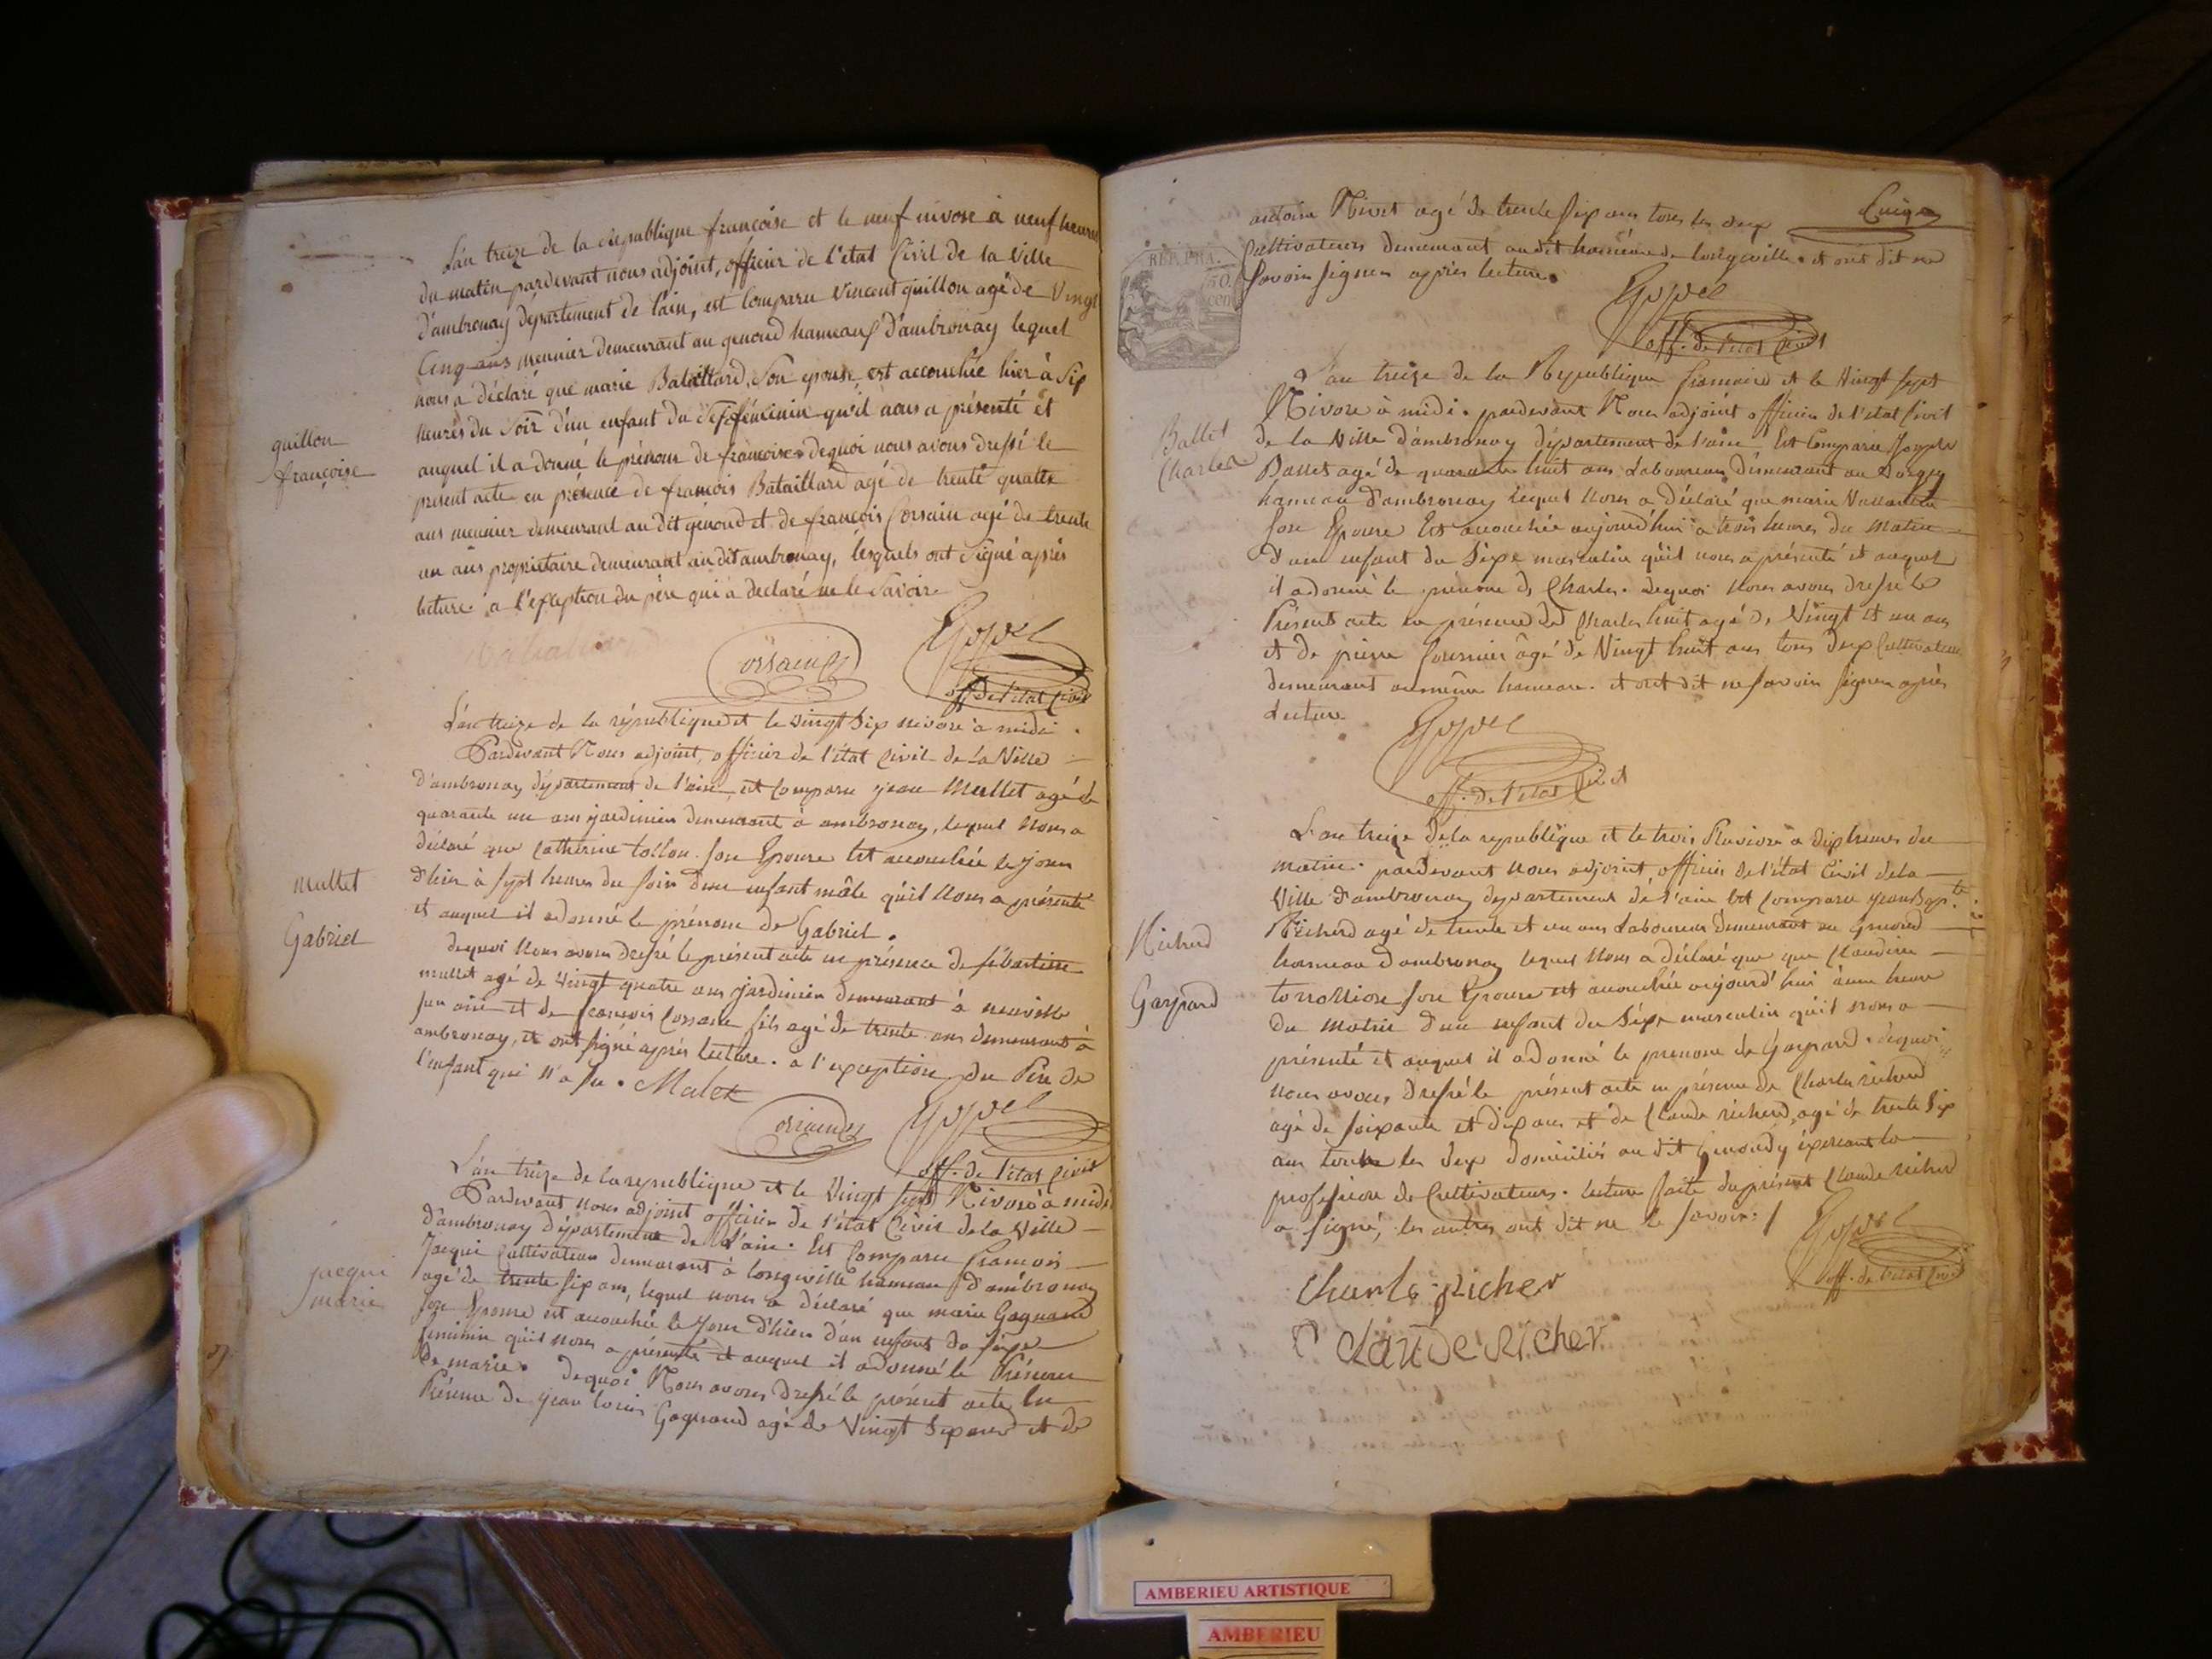 L'an treize de la republique françoise et le neuf nivose à neuf heures
du matin pardevant nous adjoint, officier de l'état Civil de la Ville
d'ambronay département de l'ain, est Comparu Vincent quillon agé de Vingt
Cinq ans meunier demeurant au genoud hameaux d'ambronay lequel
nous a déclaré que marie Bataillard, Son épouse, est accouchée hier à Six
heures du Soir d'un enfant du Sexe féminin qu'il nous a présenté et
quillon
françoise
auquel il a donné le prénom de françoise dequoi nous avons dressé le
présent acte en présence de françois Bataillard agé de trente quatre
ans meunier demeurant au dit genoud et de françois Corsain agé de trente
un ans propriétaire demeurant audit ambronay, lesquels ont Signé après
lecture a l'exception du père qui a declaré ne le Savoir
Corsain
off. de l'état Civil
L'an treize de la république et le vingt Six nivose à midi
Pardevant Nous adjoint, officier de l'état Civil de la Ville
d'ambronay département de l'ain, est Comparu jean Mullet agé de
quarante un ans jardinier demeurant à ambronay, lequel Nous a
déclaré que Catherine tollon Son Epouse Est accouchée le jour
mullet
Gabriel
d'hier à Sept heures du Soir d'un enfant mâle qu'il Nous a présenté
et auquel il a donné le prénom de Gabriel.
dequoi Nous avons dressé le présent acte en présence de Sébastien
mullet agé de Vingt quatre ans jardinier demeurant à neuville
sur ain et de françois Corsain fils agé de trente ans demeurant à
ambronay, et ont signé après lecture. a l'exception du Père de
l'enfant qui N'a Su. Malet
Corsain
off. de l'état Civil
L'an treize de la republique et le Vingt Sept Nivose à midi
Pardevant Nous adjoint officier de l'état Civil de la Ville
d'ambronay département de L'ain. Est Comparu François
jacqui
marie
Jacqui Cultivateur demeurant à longeville hameau d'ambronay
agé de trente Six ans, lequel nous a déclaré que marie Gagnand
Son Epouse est accouchée le Jour d'hier d'un enfant du Sexe
féminin qu'il nous a présenté et auquel il a donné le Prénom
De marie. dequoi Nous avons dressé le présent acte En
Présence de jean louis Gagnand agé de Vingt Six ans et de
antoine Nivet agé de trente Six ans tous les deux
Cultivateurs demeurant au dit hameau de longeville. et ont dit ne
Savoir signer après lecture.
REP. FRA.
50
cen
off. de l'état Civil
L'an treize de la République francaise et le Vingt Sept
Nivose à midi. pardevant Nous adjoint officier de l'état Civil
Ballet
Charles
de la Ville d'ambronay département de l'ain Est Comparu Joseph
Ballet agé de quarante huit ans Laboureur Demeurant au
hameau d'ambronay lequel Nous a déclaré que marie
Son Epouse Est accouchée aujourd'hui à trois heures du Matin
d'un enfant du Sexe masculin qu'il nous a présenté et auquel
il a donné le prénom de Charles. dequoi Nous avons dressé le
Présent acte en présence de Charles huit agé de Vingt et un ans
et de pierre fournier âgé de Vingt huit ans tous deux Cultivateurs
demeurant au même hameau. et ont dit ne savoir signer après
Lecture
off. de l'état Civil
L'an treize de la republique et le trois Pluviose à dix heures du
matin. pardevant Nous adjoint officier de l'état Civil de la
Ville d'ambronay département de l'ain Est Comparu jean Bapte.
Richerd
Gaspard
Richerd agé de trente et un ans Laboureur Demeurant au Genoud
hameau d'ambronay lequel Nous a déclaré que que Claudine
Son Epouse est accouchée aujourd'hui à une heure
du Matin d'un enfant du Sèxe masculin qu'il nous a
présenté et auquel il a donné le prenom de Gaspard. dequoi
nous avons dressé le présent acte en présence de Charles richerd
agé de Soixante et dix ans et de Claude richerd, agé de trente Six
ans tous les deux domiciliés au dit Genoud y exercant la
profession de Cultivateurs. lecture faite du présent Claude richerd
a signé, les autres ont dit ne le savoir.
off. de l'état Civil
Charle Richer
Claude Richer
AMBERIEU ARTISTIQUE
AMBERIEU